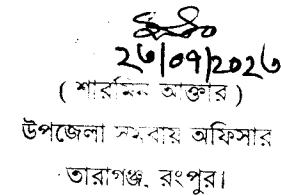 ২৬/০৭/২০২৬
( শারমিন আক্তার )
উপজেলা সমবায় অফিসার
তারাগঞ্জ, রংপুর।